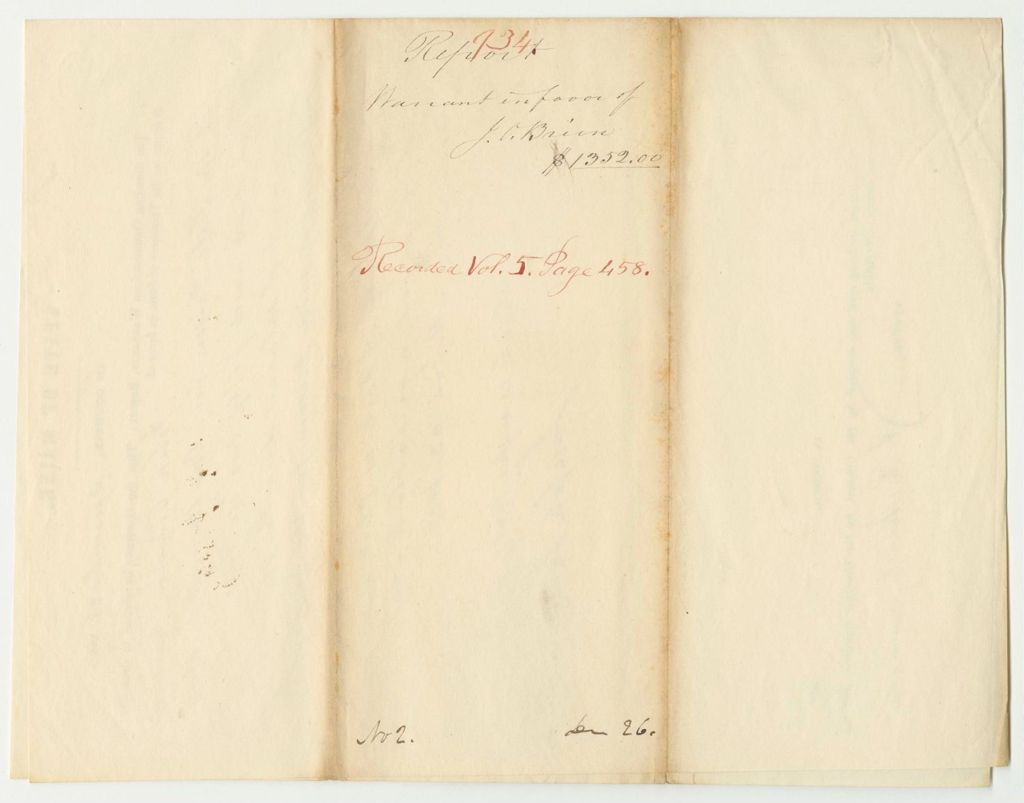 734
Report
Warrant in favor of
J. O. Brien
$1352.00
Recorded Vol. 5. Page 458.
No 2. 26.